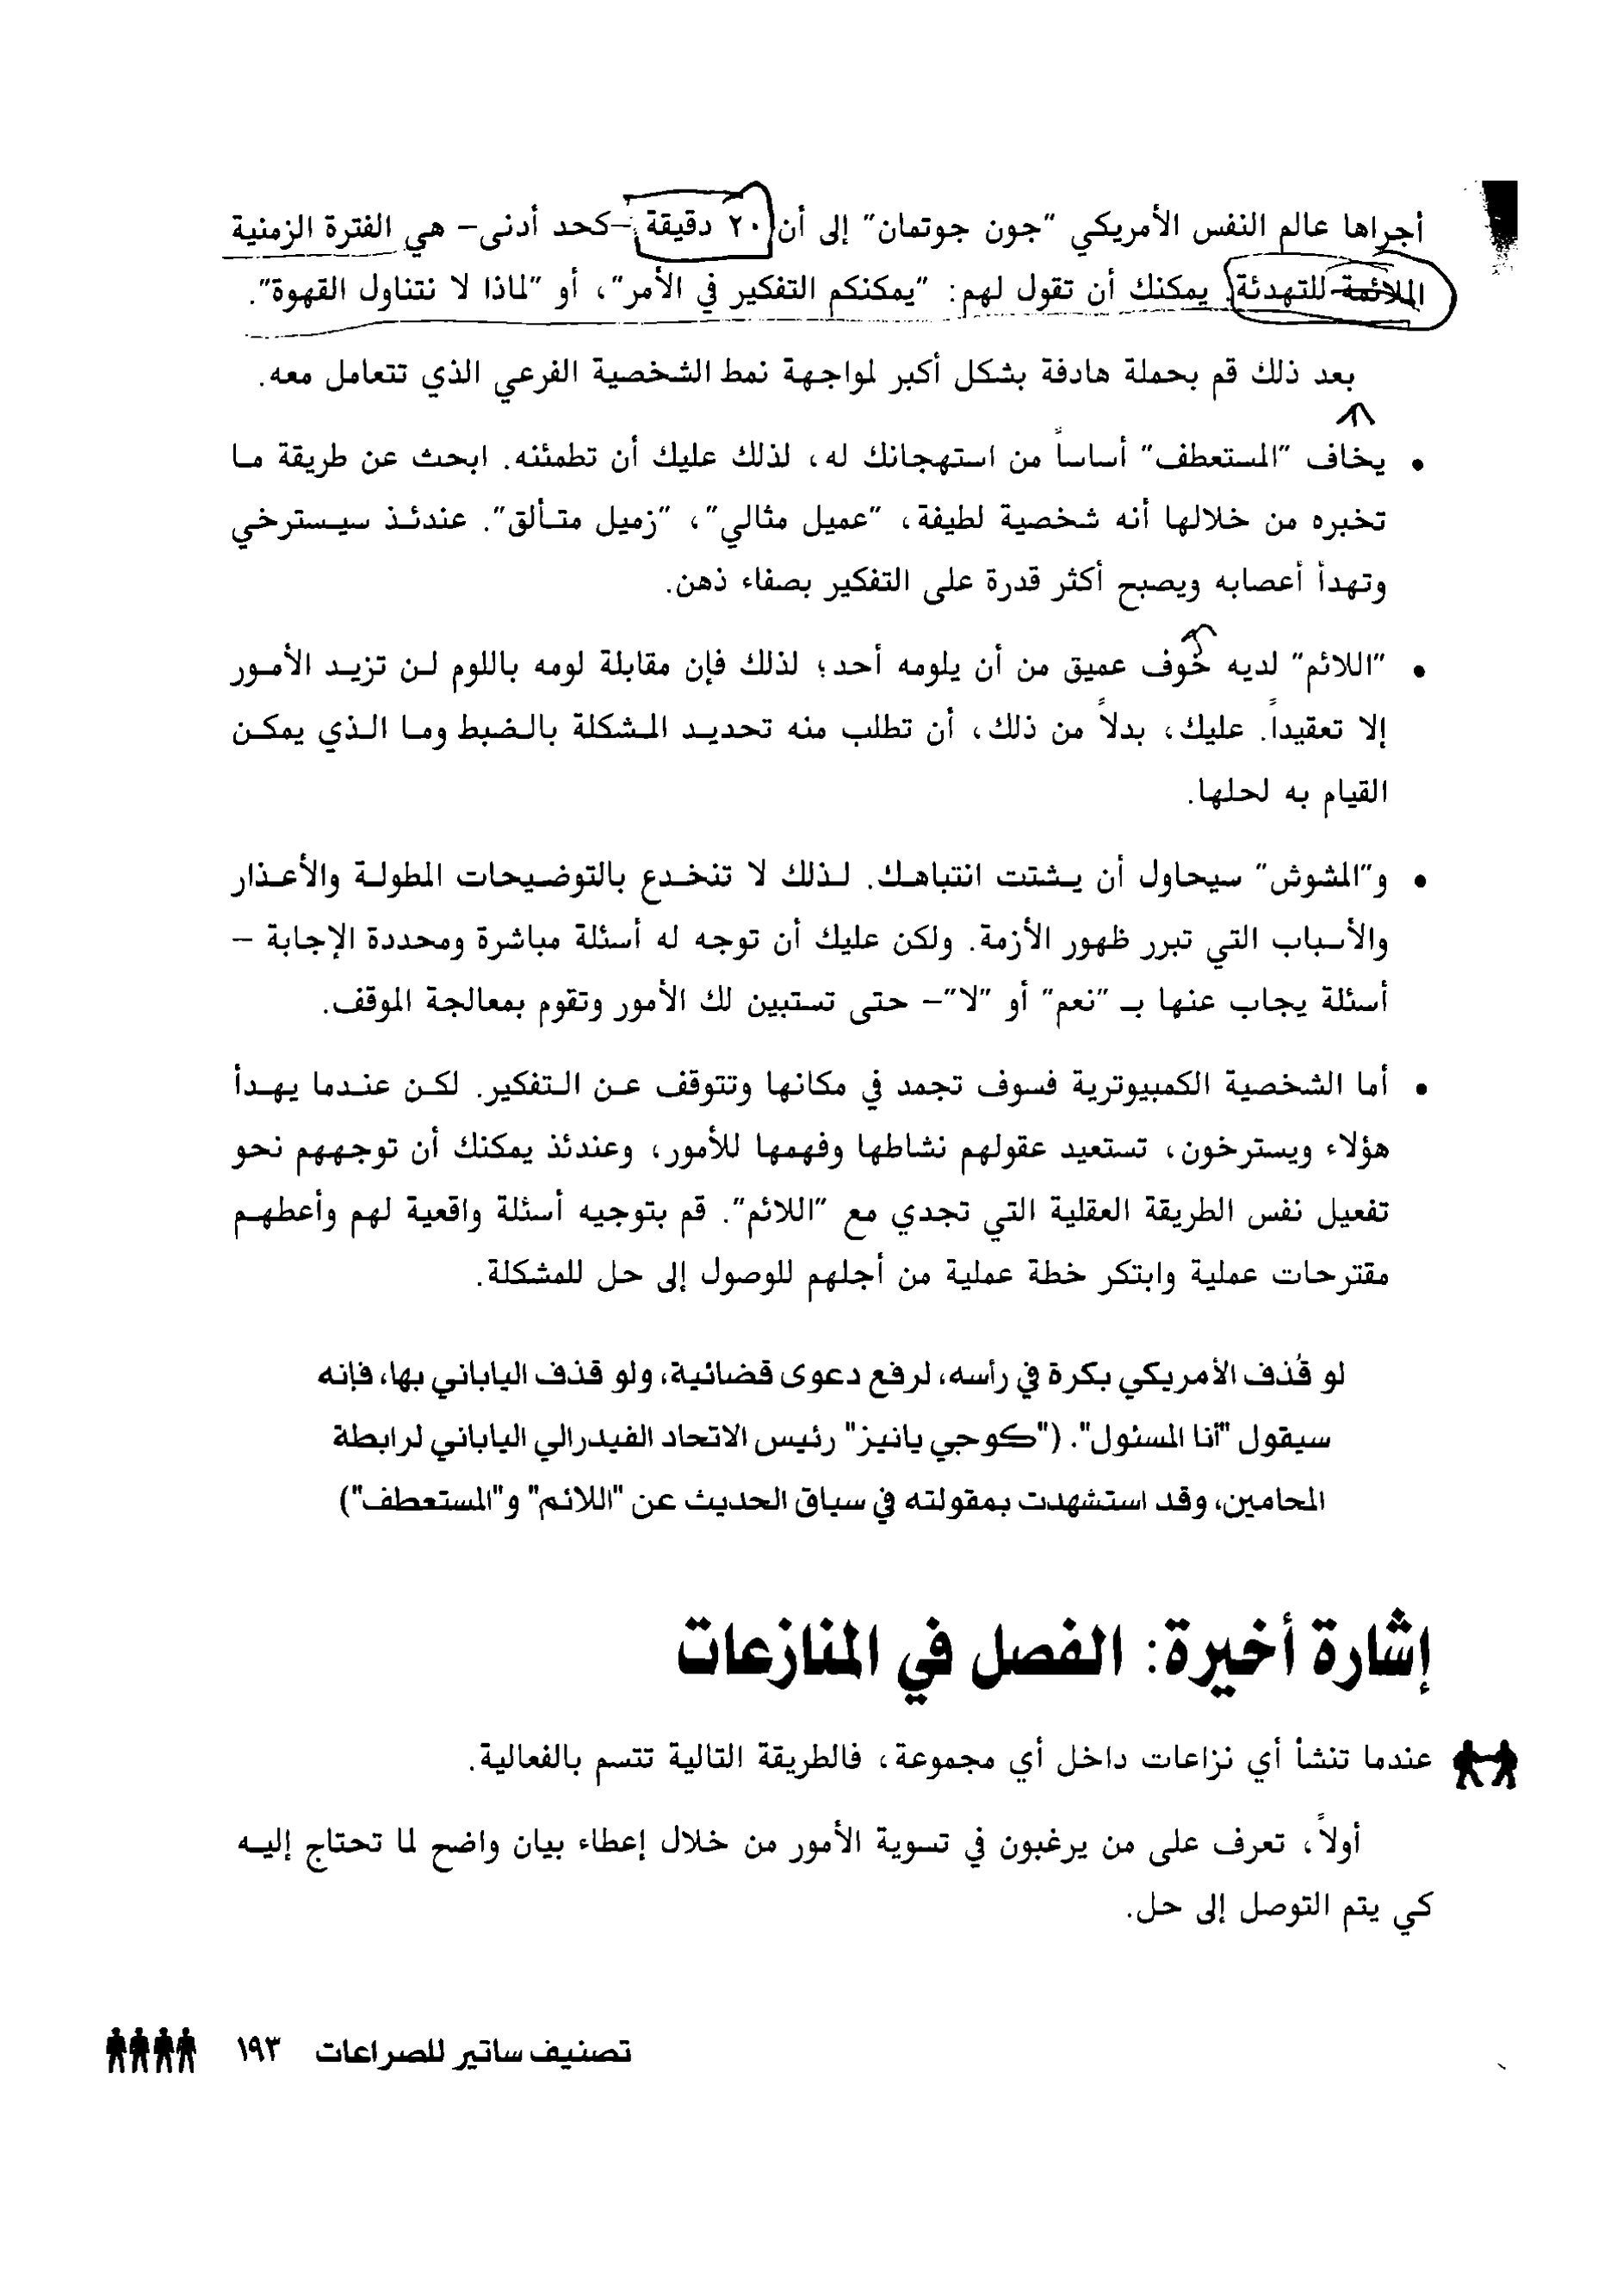 أجراها عالم النفس الأمريكي "جون جوتمان" إلى أن ٢٠ دقيقة -كحد أدنى- هي الفترة الزمنية
الملائمة للتهدئة. يمكنك أن تقول لهم: "يمكنكم التفكير في الأمر"، أو "لماذا لا نتناول القهوة".
بعد ذلك قم بحملة هادفة بشكل أكبر لمواجهة نمط الشخصية الفرعي الذي تتعامل معه.
• يخاف "المستعطف" أساساً من استهجانك له، لذلك عليك أن تطمئنه. ابحث عن طريقة ما
تخبره من خلالها أنه شخصية لطيفة، "عميل مثالي"، "زميل متألق". عندئذ سيسترخي
وتهدأ أعصابه ويصبح أكثر قدرة على التفكير بصفاء ذهن.
• "اللائم" لديه خوف عميق من أن يلومه أحد؛ لذلك فإن مقابلة لومه باللوم لن تزيد الأمور
إلا تعقيداً. عليك، بدلاً من ذلك، أن تطلب منه تحديد المشكلة بالضبط وما الذي يمكن
القيام به لحلها.
• و"المشوش" سيحاول أن يشتت انتباهك. لذلك لا تنخدع بالتوضيحات المطولة والأعذار
والأسباب التي تبرر ظهور الأزمة. ولكن عليك أن توجه له أسئلة مباشرة ومحددة الإجابة –
أسئلة يجاب عنها بـ "نعم" أو "لا"– حتى تستبين لك الأمور وتقوم بمعالجة الموقف.
• أما الشخصية الكمبيوترية فسوف تجمد في مكانها وتتوقف عن التفكير. لكن عندما يهدأ
هؤلاء ويسترخون، تستعيد عقولهم نشاطها وفهمها للأمور، وعندئذ يمكنك أن توجههم نحو
تفعيل نفس الطريقة العقلية التي تجدي مع "اللائم". قم بتوجيه أسئلة واقعية لهم وأعطهم
مقترحات عملية وابتكر خطة عملية من أجلهم للوصول إلى حل للمشكلة.
لو قُذف الأمريكي بكرة في رأسه، لرفع دعوى قضائية، ولو قذف الياباني بها، فإنه
سيقول "أنا المسئول". ("كوجي يانيز" رئيس الاتحاد الفيدرالي الياباني لرابطة
المحامين، وقد استشهدت بمقولته في سياق الحديث عن "اللائم" و"المستعطف")
إشارة أخيرة: الفصل في المنازعات
عندما تنشأ أي نزاعات داخل أي مجموعة، فالطريقة التالية تتسم بالفعالية.
أولاً، تعرف على من يرغبون في تسوية الأمور من خلال إعطاء بيان واضح لما تحتاج إليه
كي يتم التوصل إلى حل.
تصنيف ساتير للصراعات ١٩٣